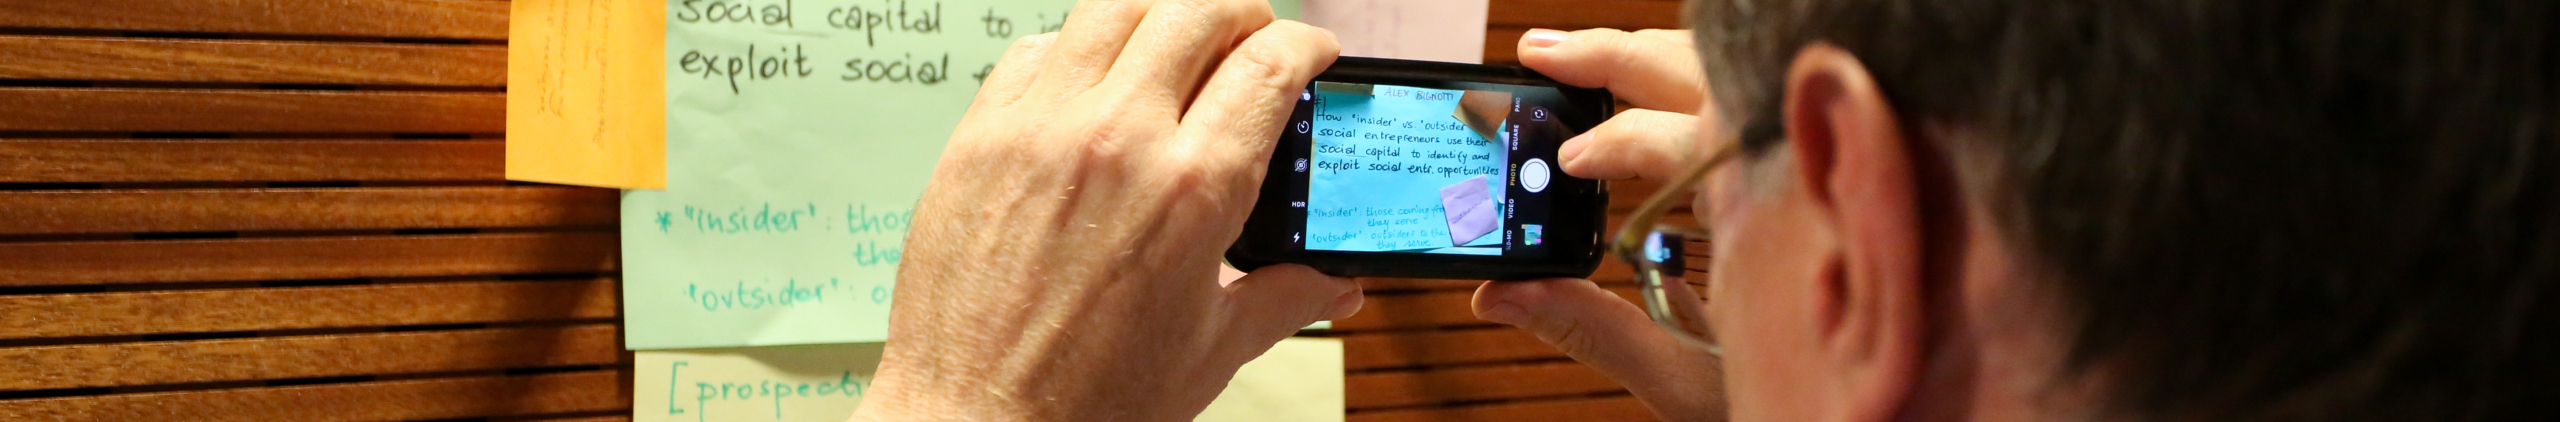 social capital to id
exploit social e
* "insider': thos
the
'outsider': o
[prospecti
ALEX BIGNOTTI
#1
How "insider' vs. 'outsider'
social entrepreneurs use their
social capital to identify and
exploit social entr. opportunities
* "insider': those coming fro
they serve
'outsider' outsiders to the
they serve
HDR
PANO
SQUARE
PHOTO
VIDEO
SLO-MO